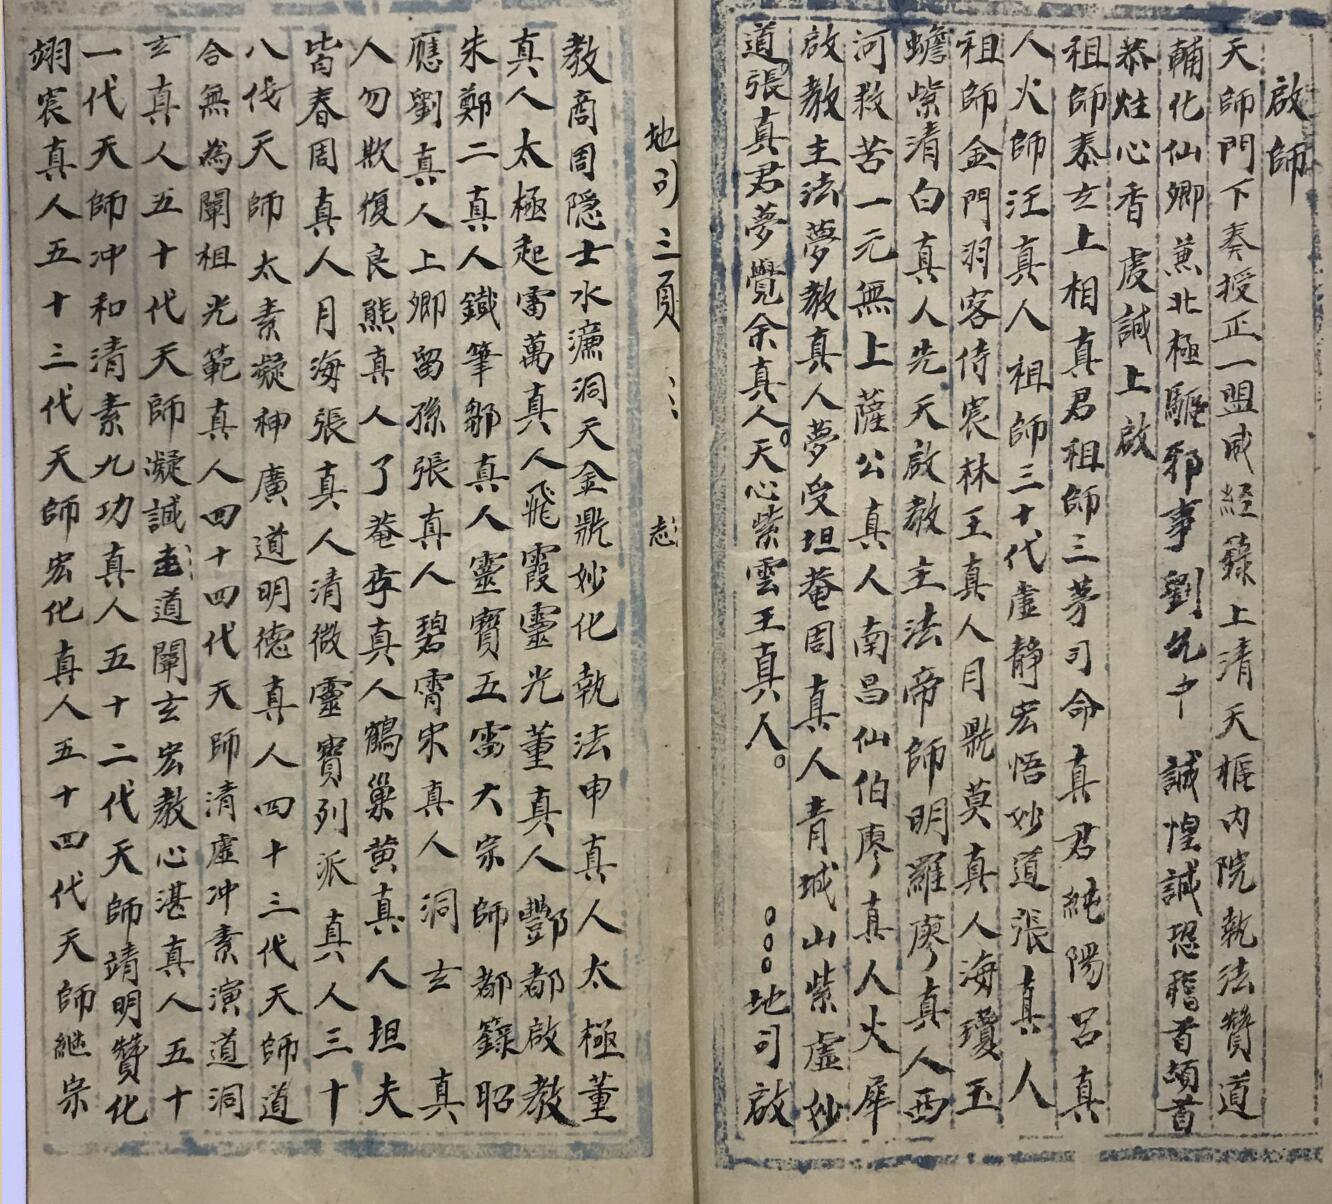 啟師
天師門下奏授正一盟威經籙上清天樞內院執法贊道
輔化仙卿兼北極驅邪事劉允中 誠惶誠恐稽首頓首
恭炷心香虔誠上啟
祖師泰玄上相真君祖師三茅司命真君純陽呂真
人火師汪真人祖師三十代虛靜宏悟妙道張真人
祖師金門羽客侍宸林王真人月鼎莫真人海瓊玉
蟾紫清白真人先天啟教主法帝師明羅廖真人西
河救苦一元無上薩公真人南昌仙伯廖真人火犀
啟教主法夢教真人夢受坦菴周真人青城山紫虛妙
道張真君夢覺余真人。天心紫雲王真人。 。。。地司啟
地司三頁 志
教商周隱士水濂洞天金鼎妙化執法申真人太極董
真人太極起雷萬真人飛霞靈光董真人酆都啟教
朱鄭二真人鐵筆鄒真人靈寶五雷大宗師都籙昭
應劉真人上卿留孫張真人碧霄宋真人洞玄 真
人勿欺復良熊真人了菴李真人鶴巢黄真人坦夫
皆春周真人月海張真人清微靈寶列派真人三十
八代天師太素凝神廣道明德真人四十三代天師道
合無為闡祖光範真人四十四代天師清虛冲素演道洞
玄真人五十代天師凝誠志道闡玄宏教心湛真人五十
一代天師冲和清素九功真人五十二代天師靖明贊化
翊宸真人五十三代天師宏化真人五十四代天師継宗